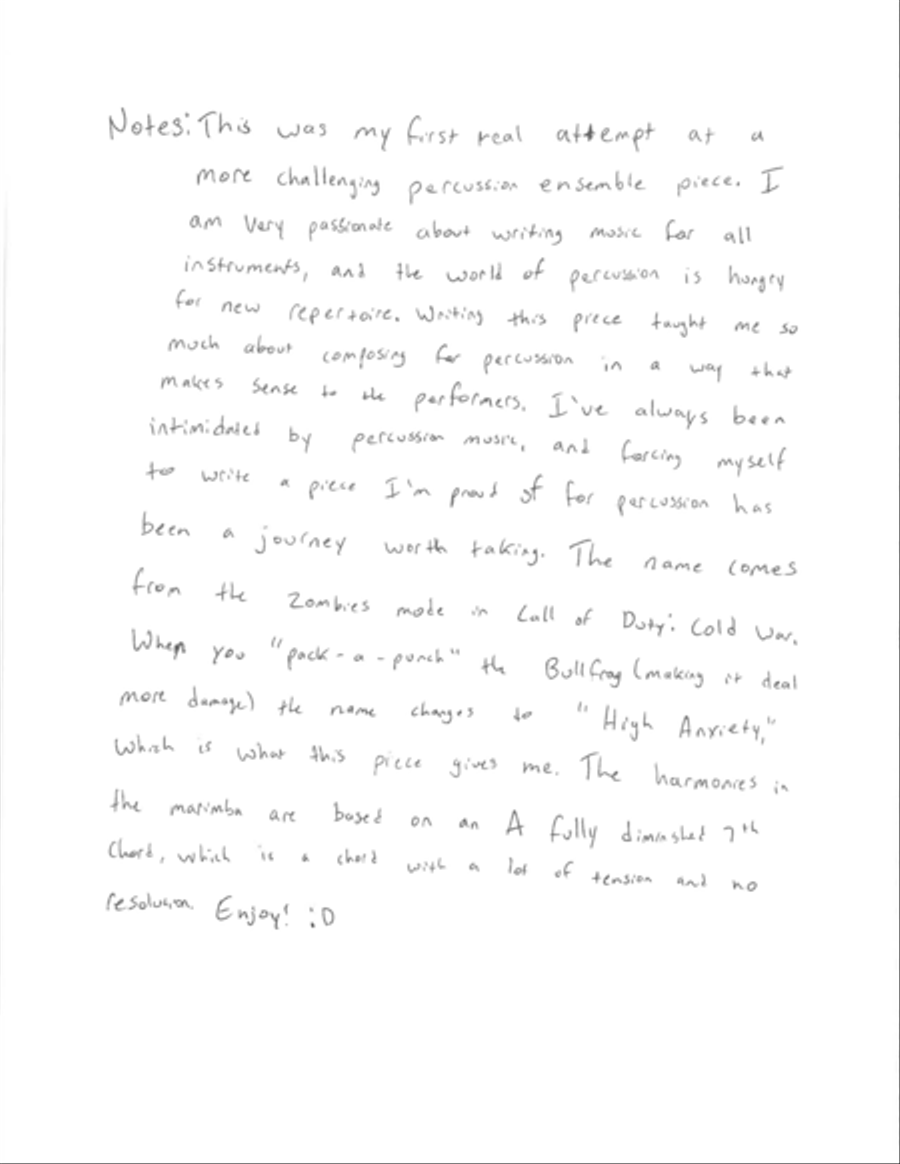 Notes: This was my first real attempt at a
more challenging percussion ensemble piece. I
am very passionate about writing music for all
instruments, and the world of percussion is hungry
for new repertoire. Writing this piece taught me so
much about composing for percussion in a way that
makes sense to the performers. I've always been
intimidated by percussion music, and forcing myself
to write a piece I'm proud of for percussion has
been a journey worth taking. The name comes
from the Zombies mode in Call of Duty: Cold War.
When you "pack-a-punch" the Bullfrog (making it deal
more damage) the name changes to "High Anxiety,"
which is what this piece gives me. The harmonies in
the marimba are based on an A fully diminished 7th
Chord, which is a chord with a lot of tension and no
resolution. Enjoy! :D